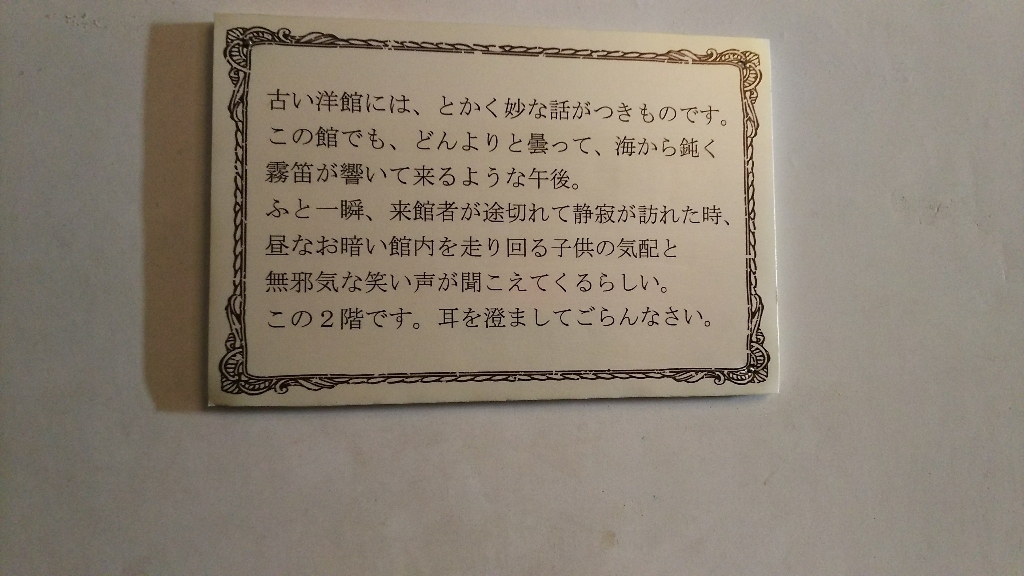 古い洋館には、とかく妙な話がつきものです。
この館でも、どんよりと曇って、海から鈍く
霧笛が響いて来るような午後。
ふと一瞬、来館者が途切れて静寂が訪れた時、
昼なお暗い館内を走り回る子供の気配と
無邪気な笑い声が聞こえてくるらしい。
この２階です。耳を澄ましてごらんなさい。